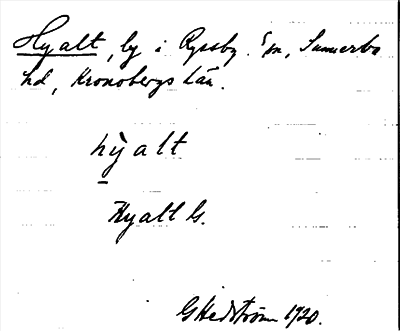 Hyalt, by i Ryssby sn, Sunnerbo
hd, Kronobergs län.
hỳalt
Hyalt G.
GHedström 1920.